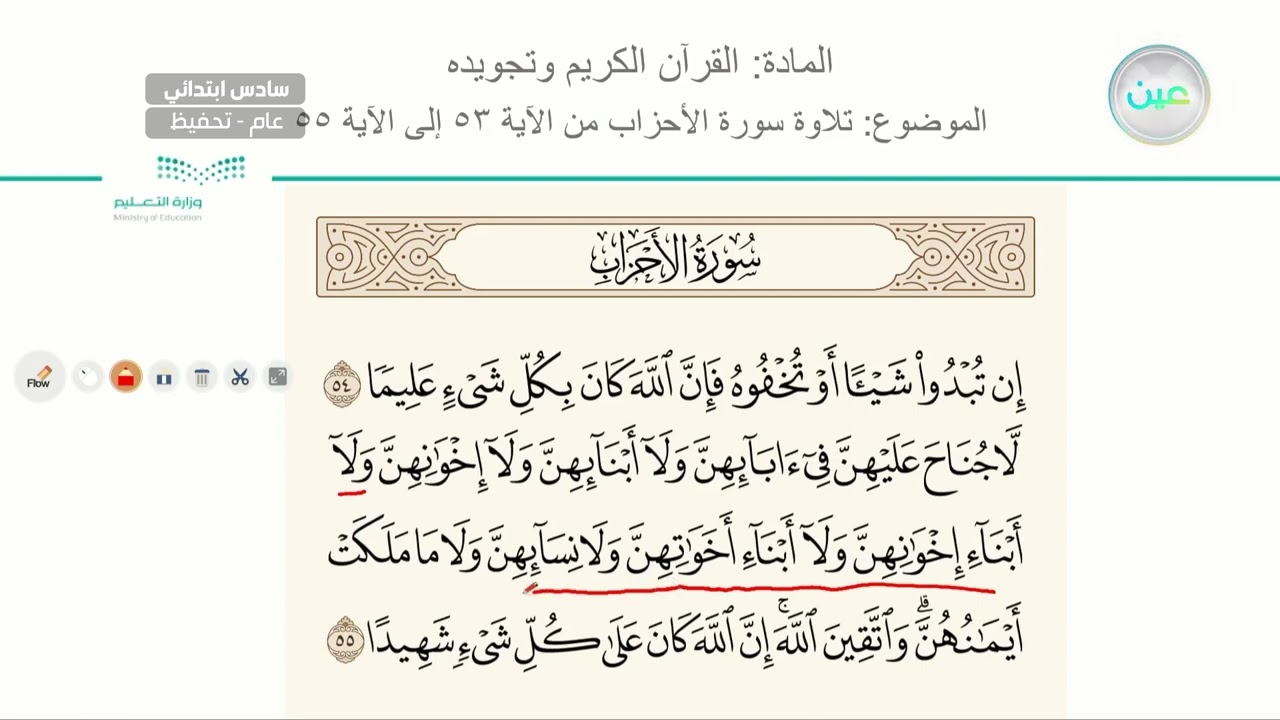 المادة: القرآن الكريم وتجويده
الموضوع: تلاوة سورة الأحزاب من الآية ٥٣ إلى الآية ٥٥
عين
سادس ابتدائي
عام - تحفيظ
وزارة التعليم
Ministry of Education
سُورَةُ الأَحْزَابِ
Flow
إِن تُبْدُوا۟ شَيْـًٔا أَوْ تُخْفُوهُ فَإِنَّ ٱللَّهَ كَانَ بِكُلِّ شَىْءٍ عَلِيمًا ٥٤
لَّا جُنَاحَ عَلَيْهِنَّ فِىٓ ءَابَآئِهِنَّ وَلَآ أَبْنَآئِهِنَّ وَلَآ إِخْوَٰنِهِنَّ وَلَآ
أَبْنَآءِ إِخْوَٰنِهِنَّ وَلَآ أَبْنَآءِ أَخَوَٰتِهِنَّ وَلَا نِسَآئِهِنَّ وَلَا مَا مَلَكَتْ
أَيْمَٰنُهُنَّ ۗ وَٱتَّقِينَ ٱللَّهَ ۚ إِنَّ ٱللَّهَ كَانَ عَلَىٰ كُلِّ شَىْءٍ شَهِيدًا ٥٥